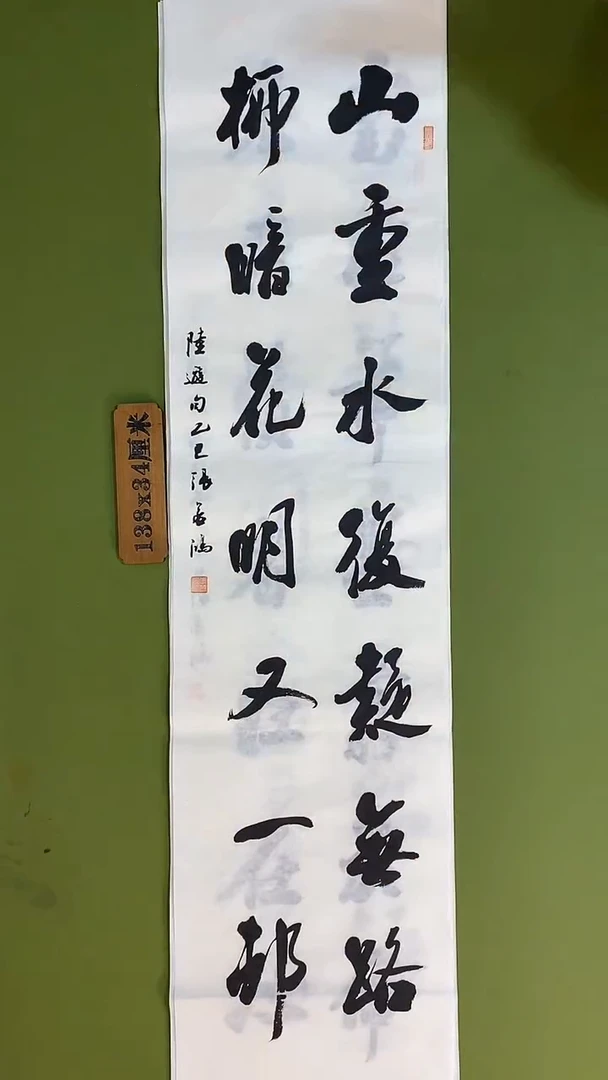 山重水復疑無路
柳暗花明又一邨
陸遊句乙巳張善鴻
138x34厘米